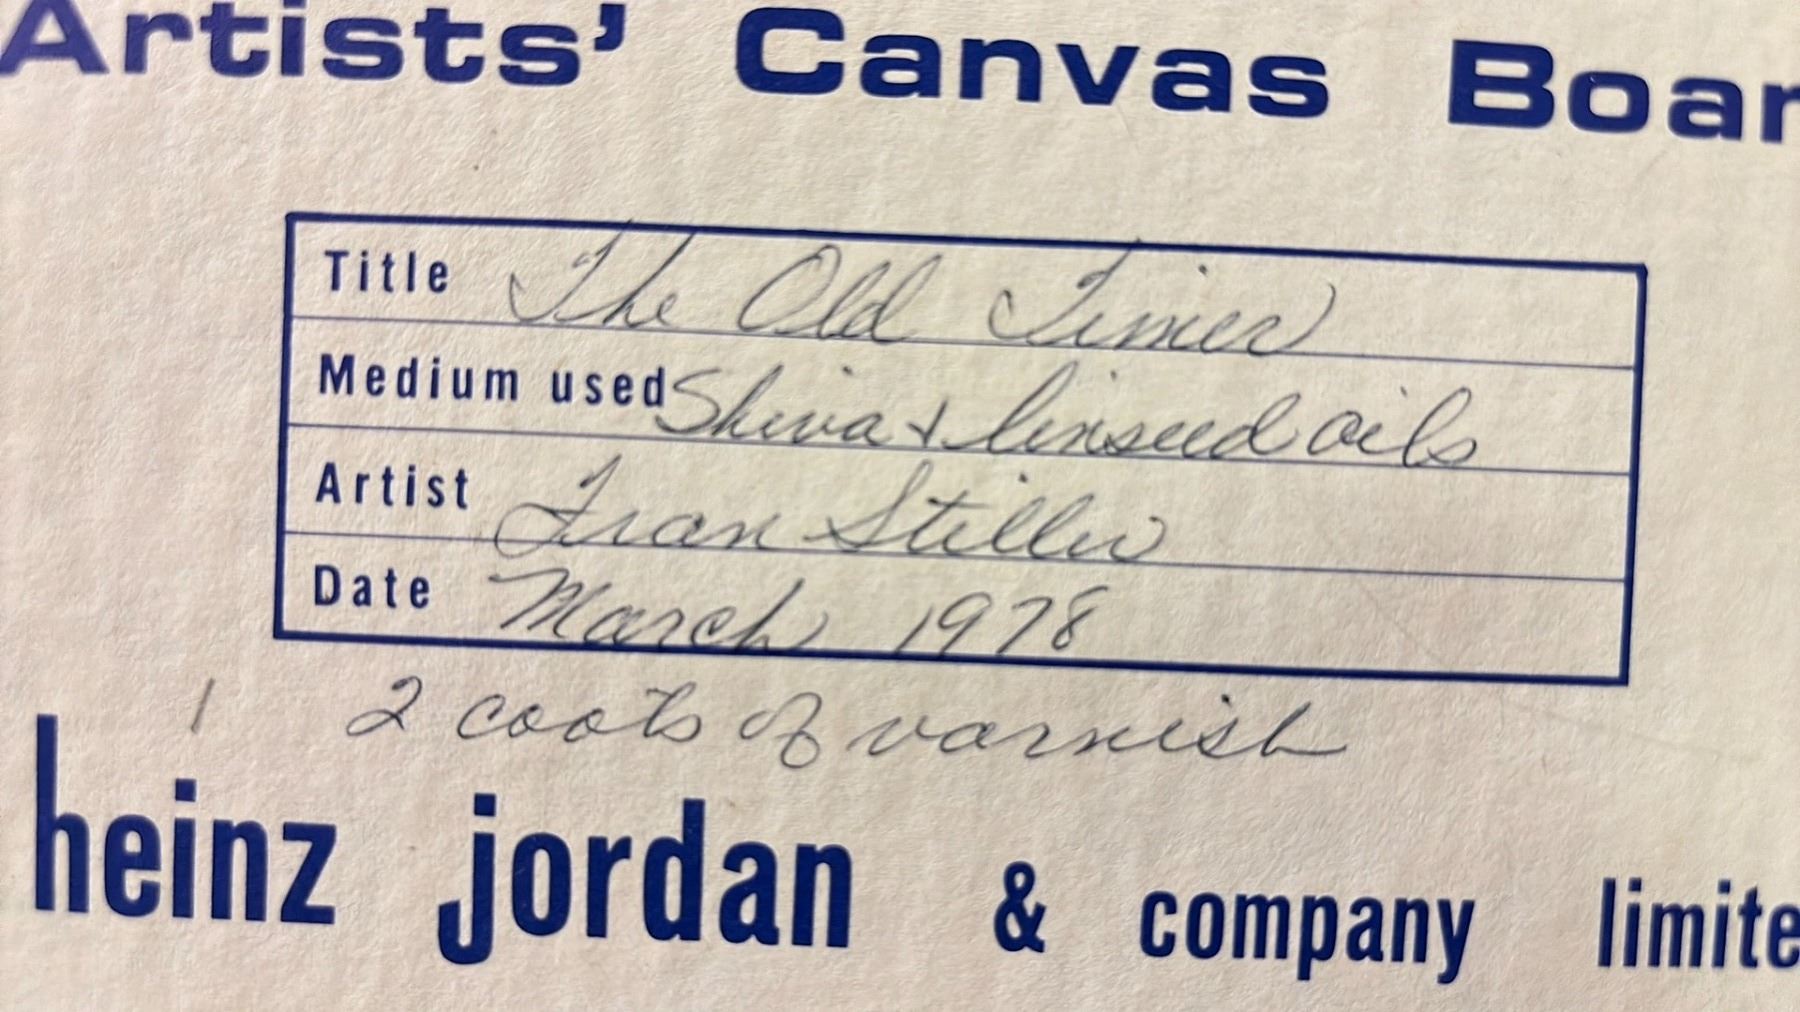 Artists' Canvas Boar
Title The Old Timer
Medium used Shiva & linseed oils
Artist Fran Stiller
Date March 1978
2 coats of varnish
heinz jordan & company limite